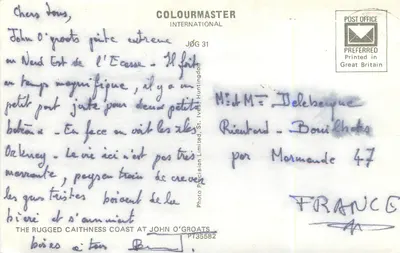 COLOURMASTER
INTERNATIONAL
JOG 31
POST OFFICE
PREFERRED
Printed in
Great Britain
Photo Precision Limited, St. Ives, Huntingdon
Chers tous,
John O'groats pointe extreme
au Nord Est de l'Ecosse - Il fait
un temps magnifique, il y a un
petit port juste pour deux petits
bateaux - En face on voit les iles
Orkney - La vie ici n'est pas très
marrante, paysan train de crever
les gens tristes boivent de la
bière et s'ennuient
bises à tous
Mr et Me Delebecque
47
par Marmande
FRANCE
THE RUGGED CAITHNESS COAST AT JOHN O'GROATS
PT35582